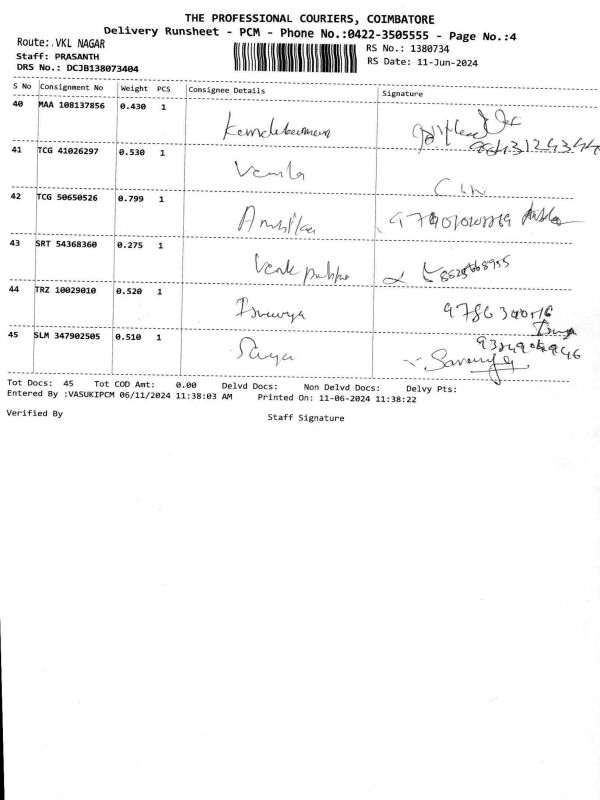 THE PROFESSIONAL COURIERS, COIMBATORE
Delivery Runsheet - PCM - Phone No.:0422-3505555 - Page No.:4
Route:.VKL NAGAR
RS No.: 1380734
Staff: PRASANTH
RS Date: 11-Jun-2024
DRS No.: DCJB138073404
S No Consignment No Weight PCS Consignee Details Signature
40 MAA 108137856 0.430 1
41 TCG 41026297 0.530 1 Vemla
42 TCG 50650526 0.799 1 Ambika
43 SRT 54368360 0.275 1
44 TRZ 10029010 0.520 1
45 SLM 347902505 0.510 1
Tot Docs: 45 Tot COD Amt: 0.00 Delvd Docs: Non Delvd Docs: Delvy Pts:
Entered By :VASUKIPCM 06/11/2024 11:38:03 AM Printed On: 11-06-2024 11:38:22
Verified By Staff Signature